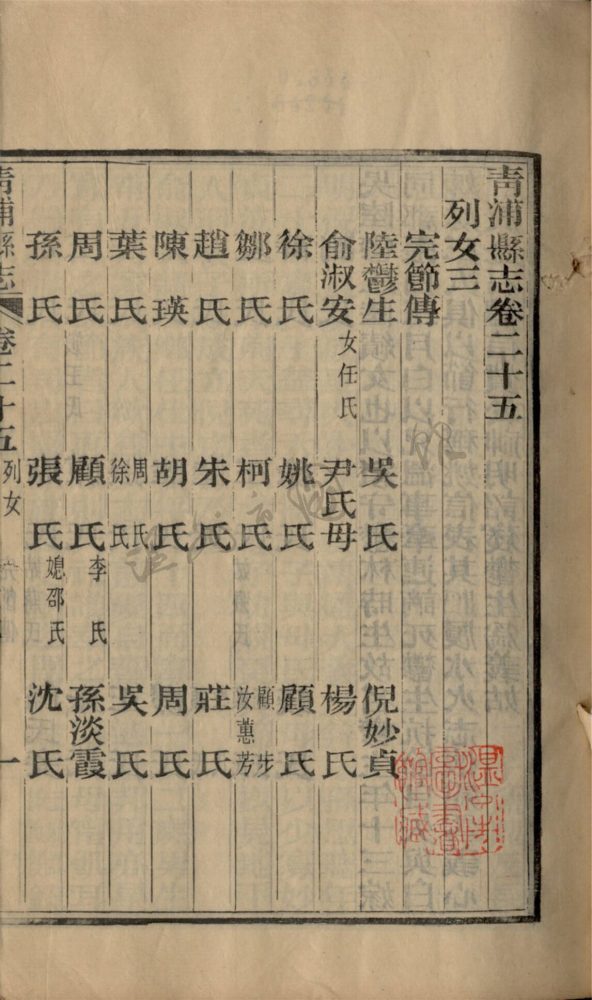 青浦縣志卷二十五
列女三
完節傳
陸鬱生 吳氏 倪妙貞
俞淑安 女任氏 尹氏母 楊氏
徐氏 姚氏 顧氏
鄒氏 柯氏 顧步 汝蕙芳
趙氏 朱氏 莊氏
陳瑛 胡氏 周氏
葉氏 周氏 徐氏 吳氏
周氏 顧氏 李氏 孫淡霞
孫氏 張氏 媳邵氏 沈氏
青浦縣志 卷二十五 列女 一